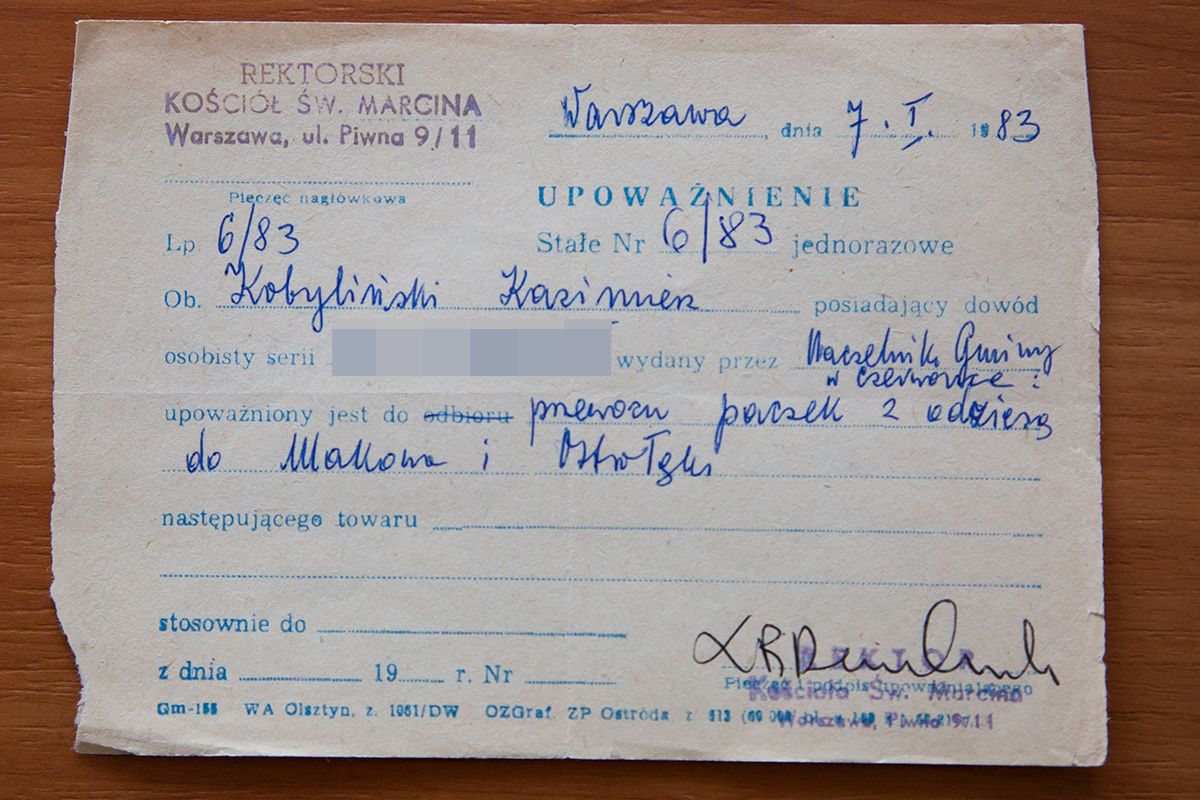 REKTORSKI
KOŚCIÓŁ ŚW. MARCINA
Warszawa, ul. Piwna 9/11
Warszawa, dnia 7. I. 1983
Pieczęć nagłówkowa
UPOWAŻNIENIE
Lp 6/83
Stałe Nr 6/83 jednorazowe
Ob. Kobyliński Kazimierz posiadający dowód
osobisty serii wydany przez Naczelnik Gminy
w Czerwonce :
upoważniony jest do odbioru przewozu paczek z odzieżą
do Makowa i Ostrołęki
następującego towaru
stosownie do
z dnia 19 r. Nr
REKTOR
Pieczęć i podpis upoważniającego
Kościoła Św. Marcina
Warszawa, Piwna 9/11
Gm-155 WA Olsztyn, z. 1061/DW OZGraf. ZP Ostróda z 513